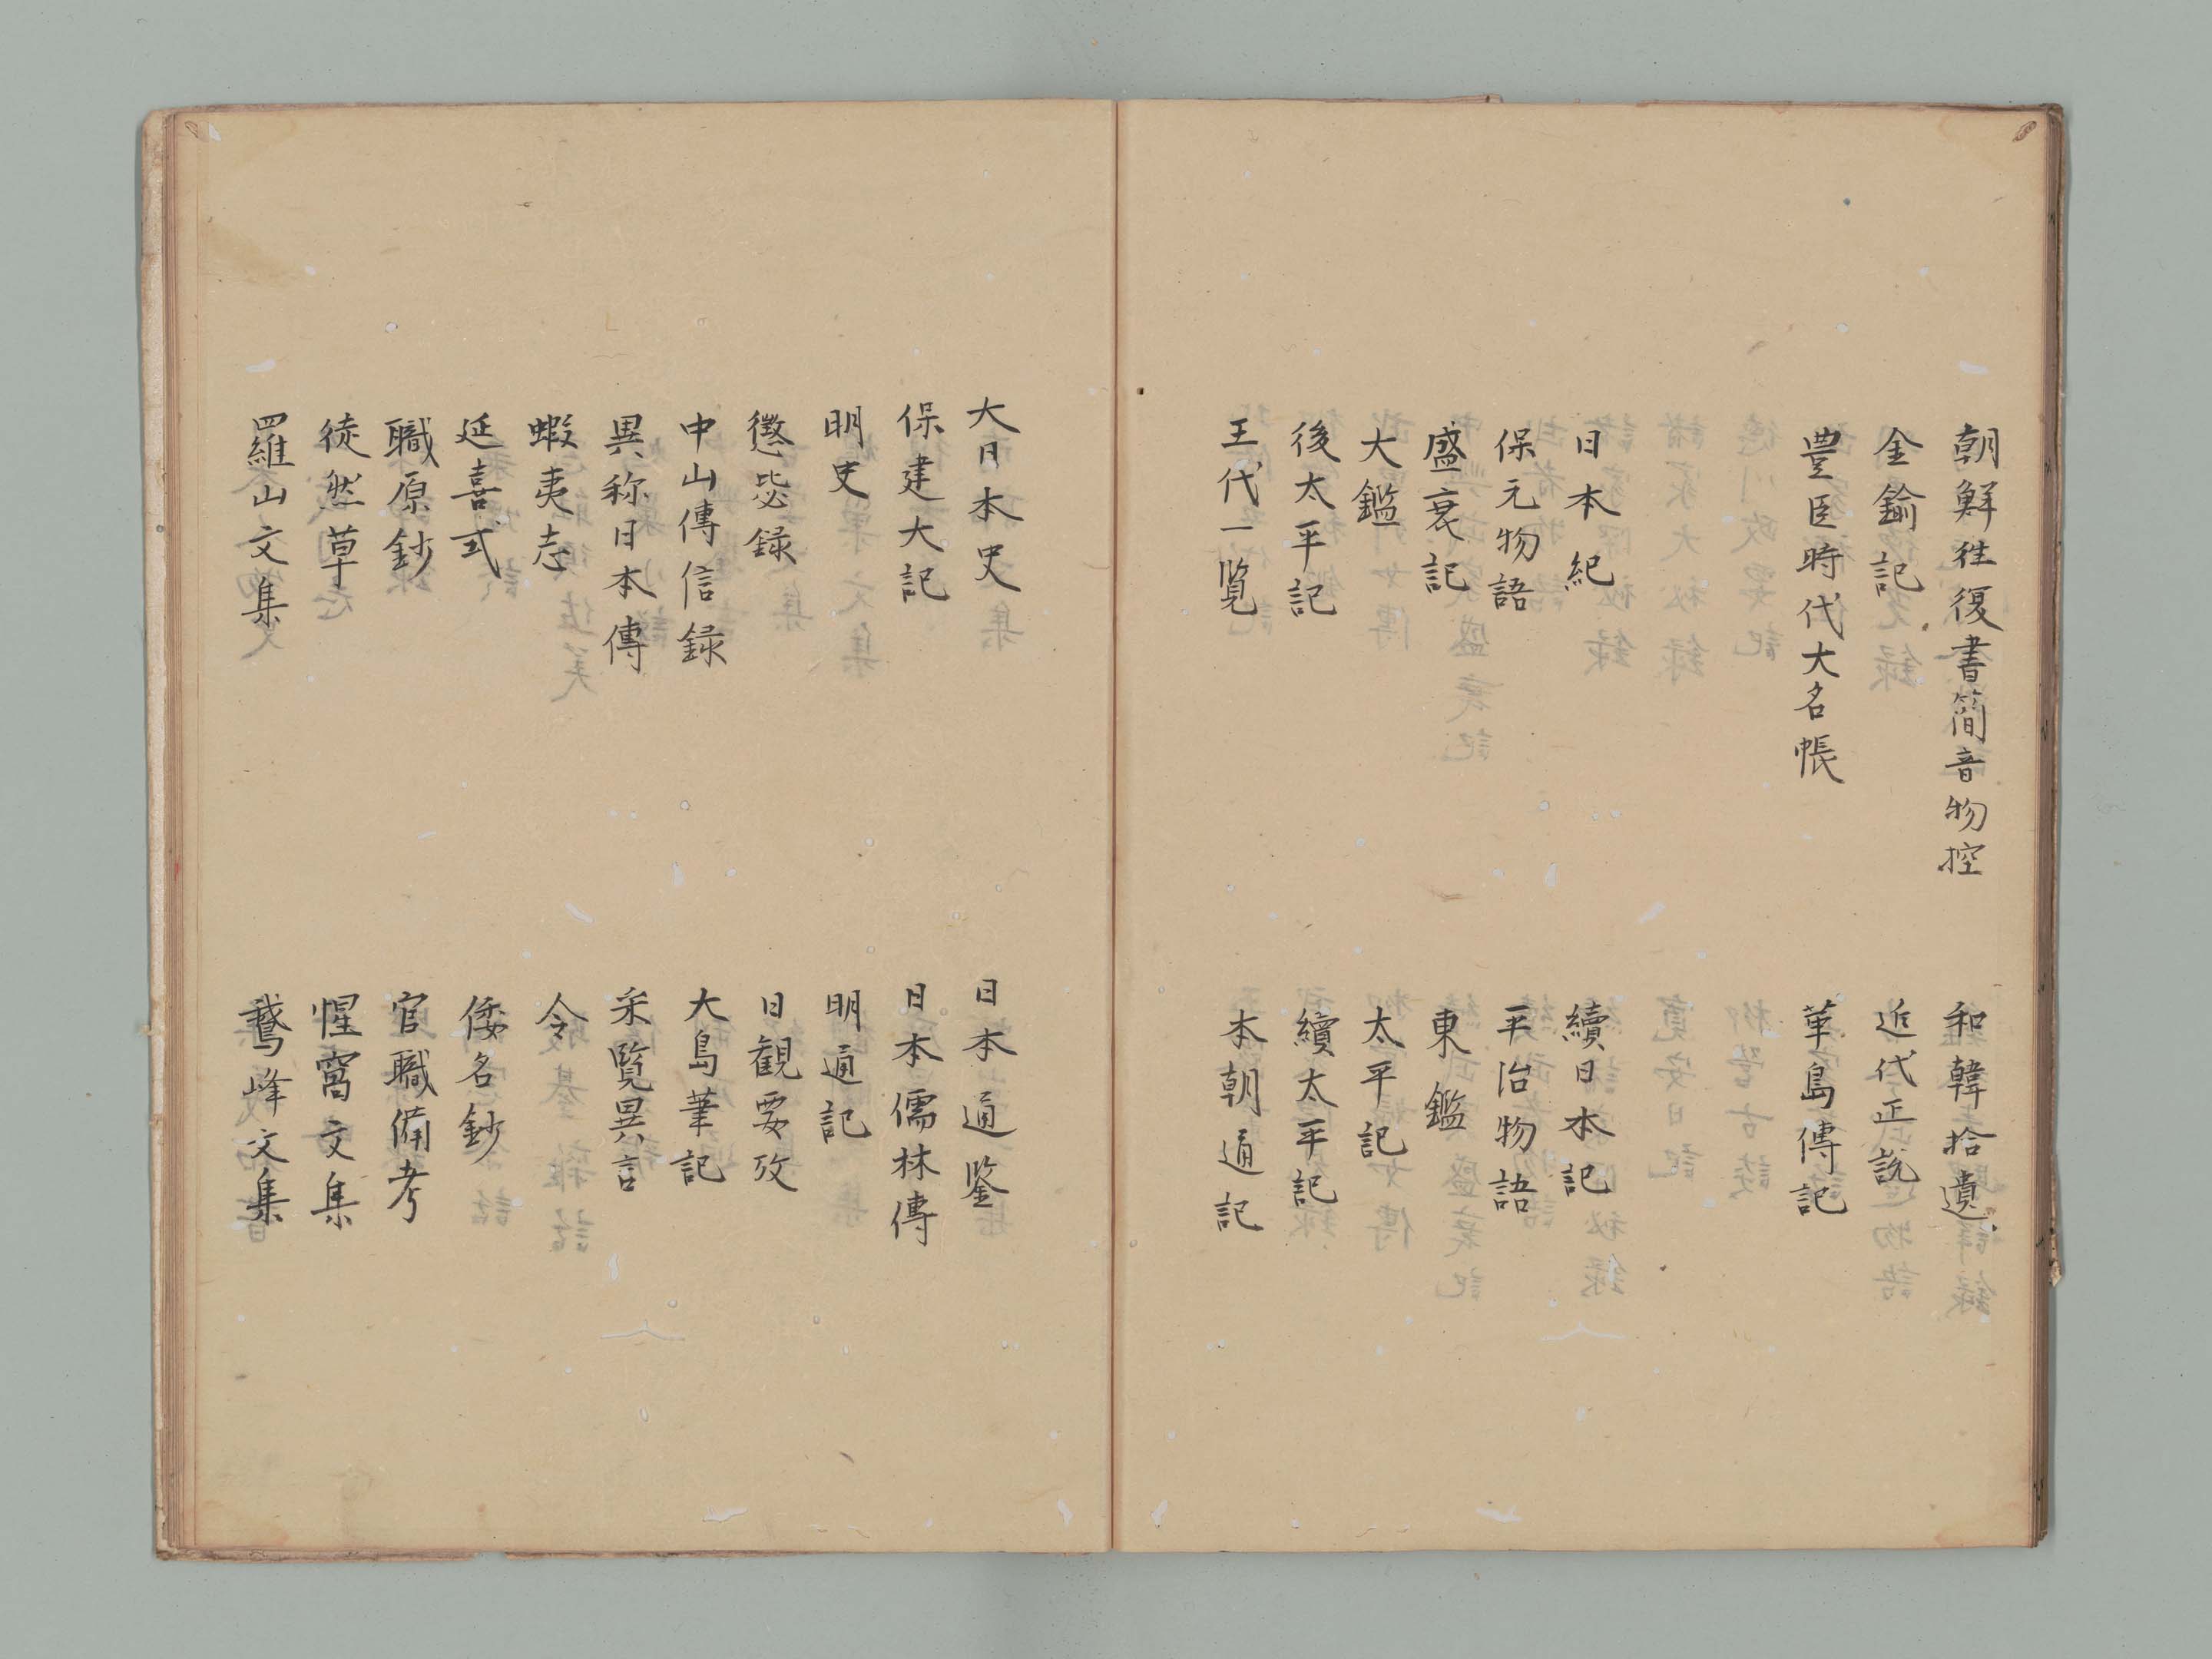 朝鮮往復書簡音物控
和韓拾遺
金鍮記
近代正説
豊臣時代大名帳
華島傳記
日本紀
續日本記
保元物語
平治物語
盛衰記
東鑑
大鑑
太平記
後太平記
續太平記
王代一覧
本朝通記
大日本史
日本通鑒
保建大記
日本儒林傳
明史
明通記
懲毖録
日観要攷
中山傳信録
大島筆記
異称日本傳
采覧異言
蝦夷志
令
延喜式
倭名鈔
職原鈔
官職備考
徒然草
惺窩文集
羅山文集
鵞峰文集